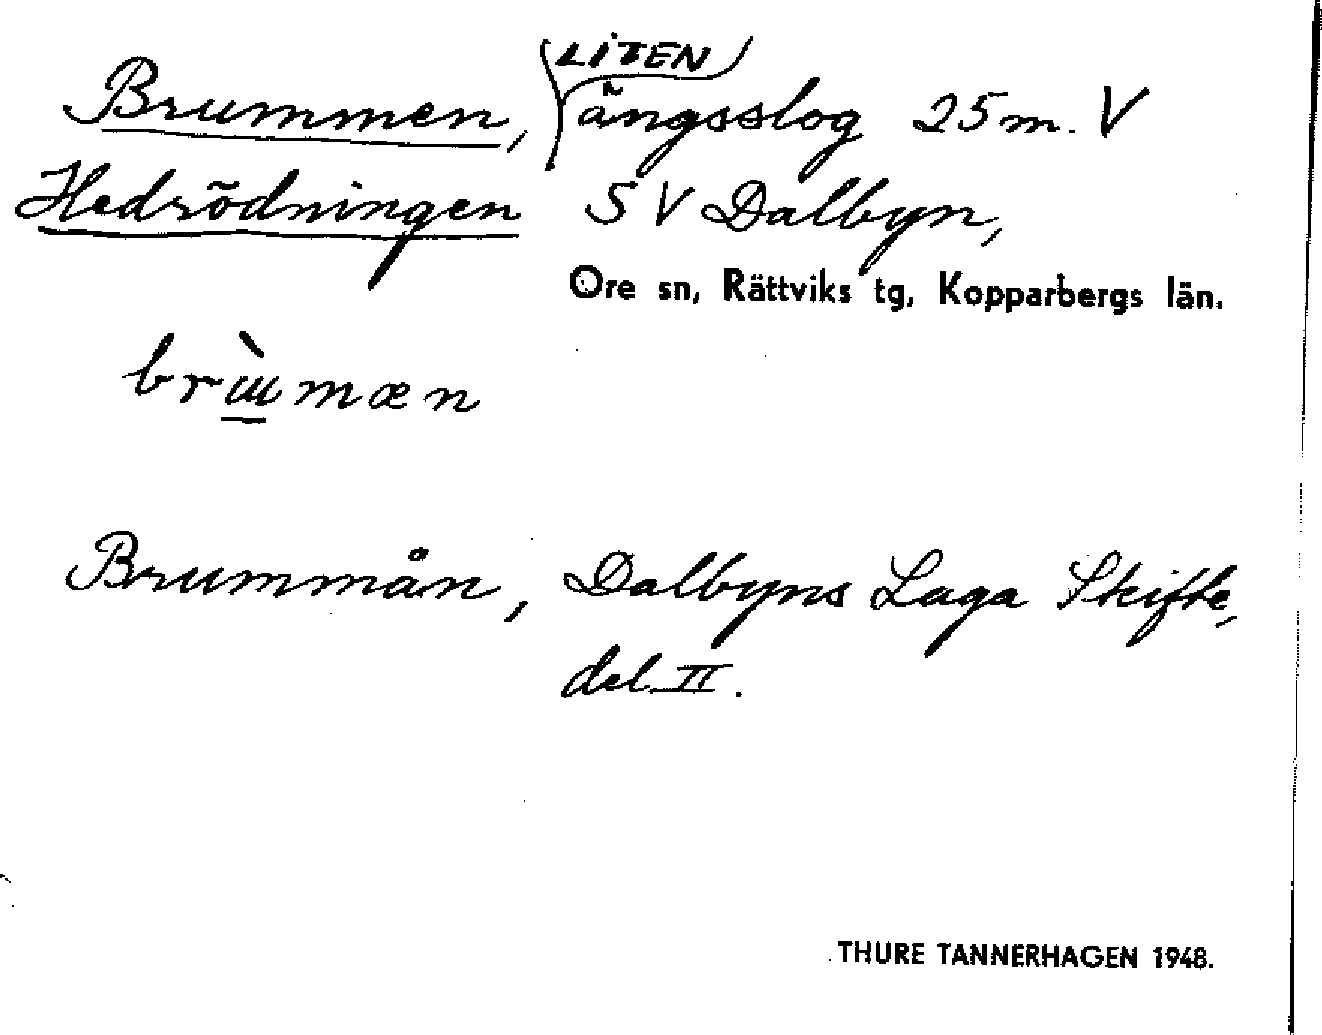 Brummen, LITEN ängsslog 25 m. V
Hedrödningen S V Dalbyn,
Ore sn, Rättviks tg, Kopparbergs län.
Brummån, Dalbyns Laga Skifte,
del II.
THURE TANNERHAGEN 1948.